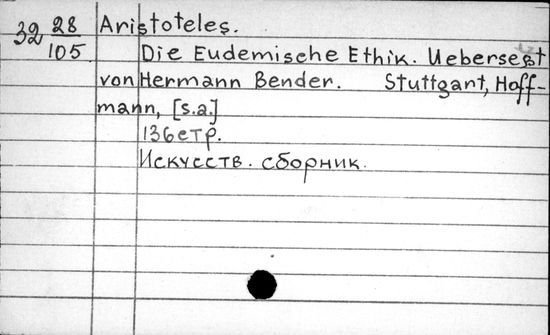 32 28 Aristoteles.
105 Die Eudemische Ethik. Uebersetzt
von Hermann Bender. Stuttgart, Hoff-
mann, [s.a.]
136 стр.
Искусств. сборник.